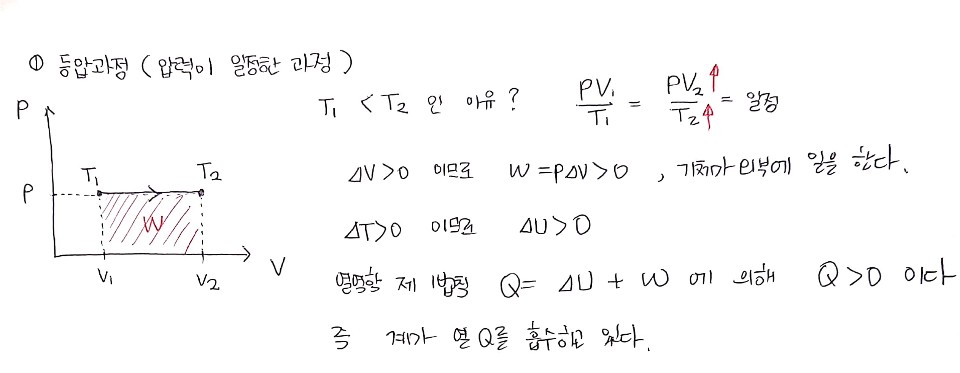 ① 등압과정 (압력이 일정한 과정)
P
T₁ < T₂ 인 이유? PV₁/T₁ = PV₂↑/T₂↑ = 일정
T₁ T₂
P
W
V₁ V₂ V
ΔV>0 이므로 W=PΔV>0, 기체가 외부에 일을 한다.
ΔT>0 이므로 ΔU>0
열역학 제 1법칙 Q= ΔU + W 에 의해 Q>0 이다
즉 계가 열 Q를 흡수하고 있다.